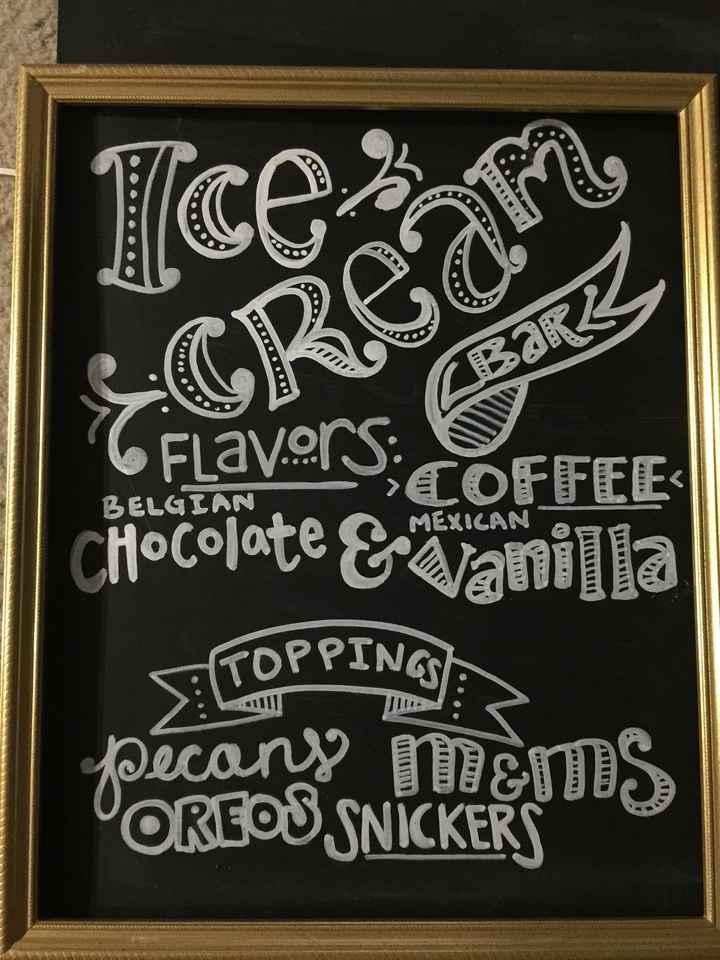 Ice
Cream
Bar
Flavors:
COFFEE
BELGIAN
CHocolate &
MEXICAN
Vanilla
TOPPINGS
pecans m&ms
OREOS SNICKERS